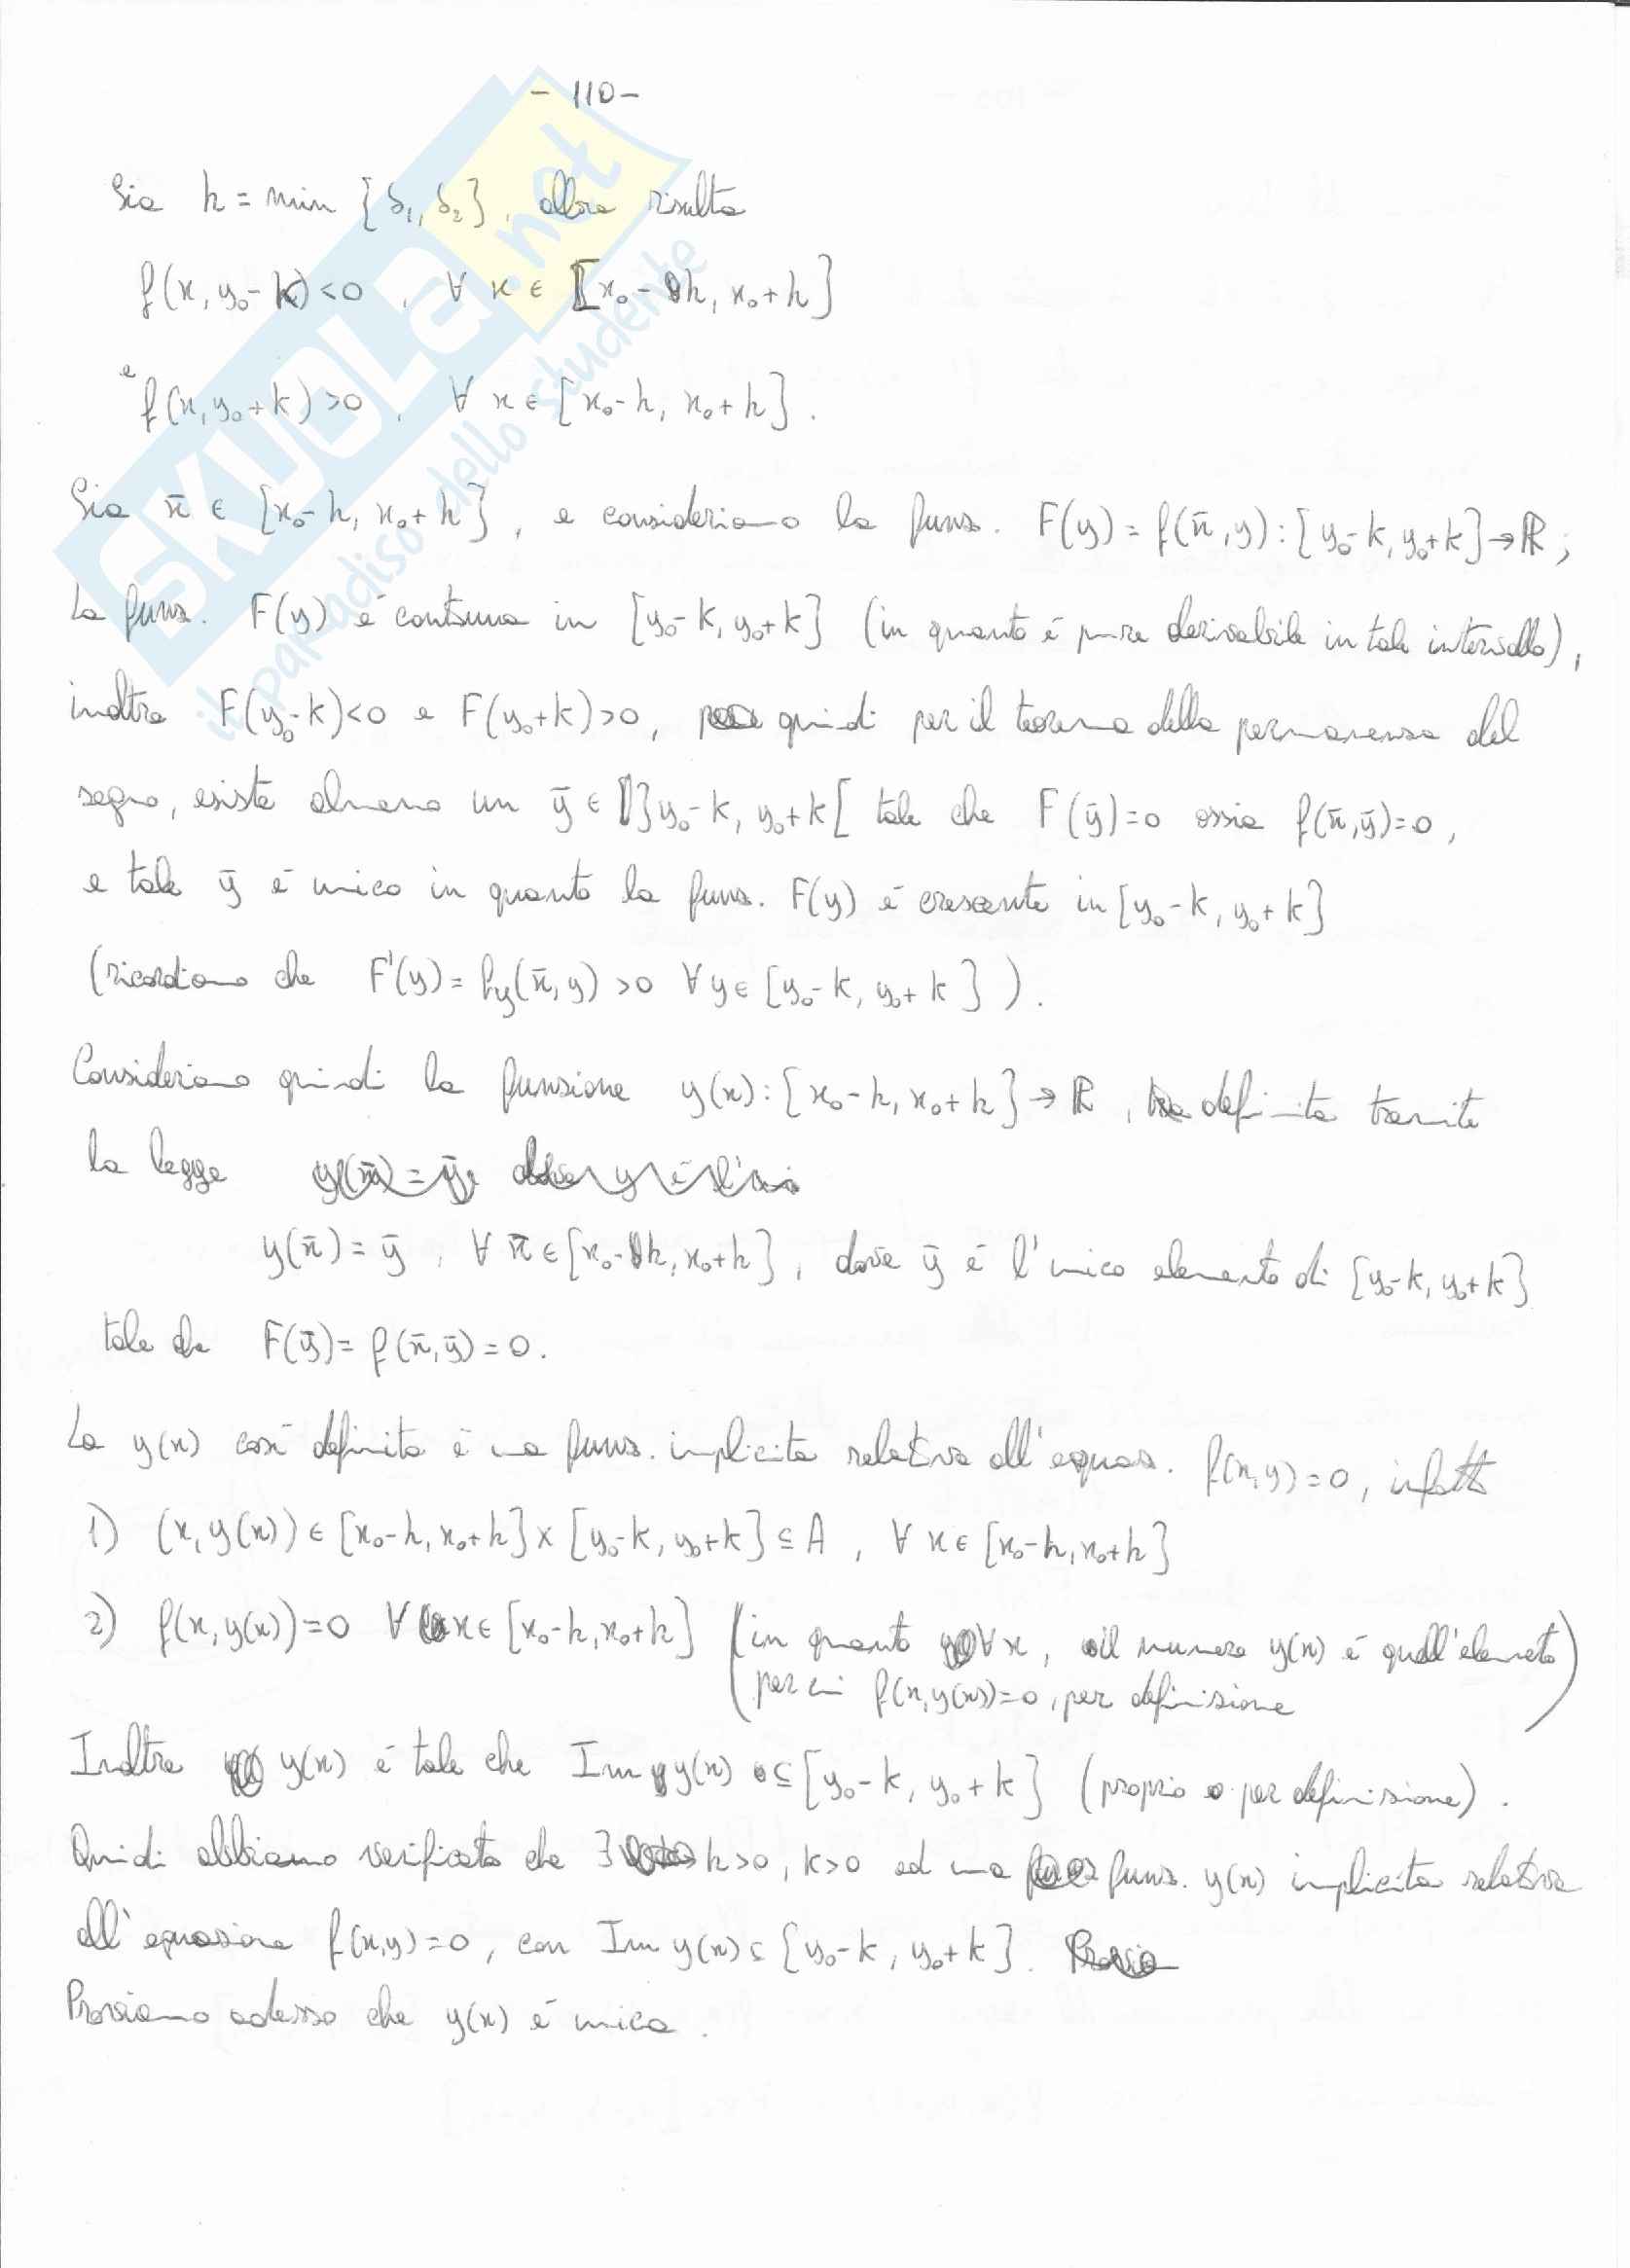 - 110 -
Sia h = min {δ₁, δ₂}, allora risulta
f(x, y₀-k)<0, ∀ x ∈ [x₀-h, x₀+h]
e
f(x, y₀+k)>0, ∀ x ∈ [x₀-h, x₀+h].
Sia x̄ ∈ [x₀-h, x₀+h], e consideriamo la funz. F(y) = f(x̄,y):[y₀-k, y₀+k]→ℝ;
La funz. F(y) è continua in [y₀-k, y₀+k] (in quanto è pure derivabile in tale intervallo),
inoltre F(y₀-k)<0 e F(y₀+k)>0, quindi per il teorema della permanenza del
segno, esiste almeno un ȳ ∈ ]y₀-k, y₀+k[ tale che F(ȳ)=0 ossia f(x̄,ȳ)=0,
e tale ȳ è unico in quanto la funz. F(y) è crescente in [y₀-k, y₀+k]
(ricordiamo che F'(y)= f_y(x̄,y)>0 ∀ y ∈ [y₀-k, y₀+k]).
Consideriamo quindi la funzione y(x):[x₀-h, x₀+h]→ℝ, definita tramite
la legge
y(x̄)=ȳ, ∀ x̄ ∈ [x₀-h, x₀+h], dove ȳ è l'unico elemento di [y₀-k, y₀+k]
tale che F(ȳ)= f(x̄,ȳ)=0.
La y(x) così definita è una funz. implicita relativa all'equaz. f(x,y)=0, infatti
1) (x, y(x)) ∈ [x₀-h, x₀+h] × [y₀-k, y₀+k] ⊆ A, ∀ x ∈ [x₀-h, x₀+h]
2) f(x, y(x))=0 ∀ x ∈ [x₀-h, x₀+h] (in quanto ∀x, il numero y(x) è quell'elemento
per cui f(x,y(x))=0, per definizione)
Inoltre y(x) è tale che Im y(x) ⊆ [y₀-k, y₀+k] (proprio per definizione).
Quindi abbiamo verificato che ∃ h>0, k>0 ed una funz. y(x) implicita relativa
all'equazione f(x,y)=0, con Im y(x) ⊆ [y₀-k, y₀+k].
Proviamo adesso che y(x) è unica.
SKUOLA.net
il paradiso dello studente